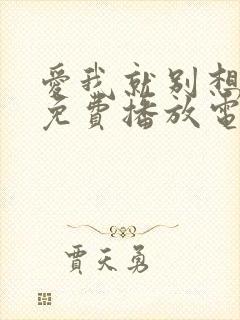 愛我就别想
免費播放電
賈天勇